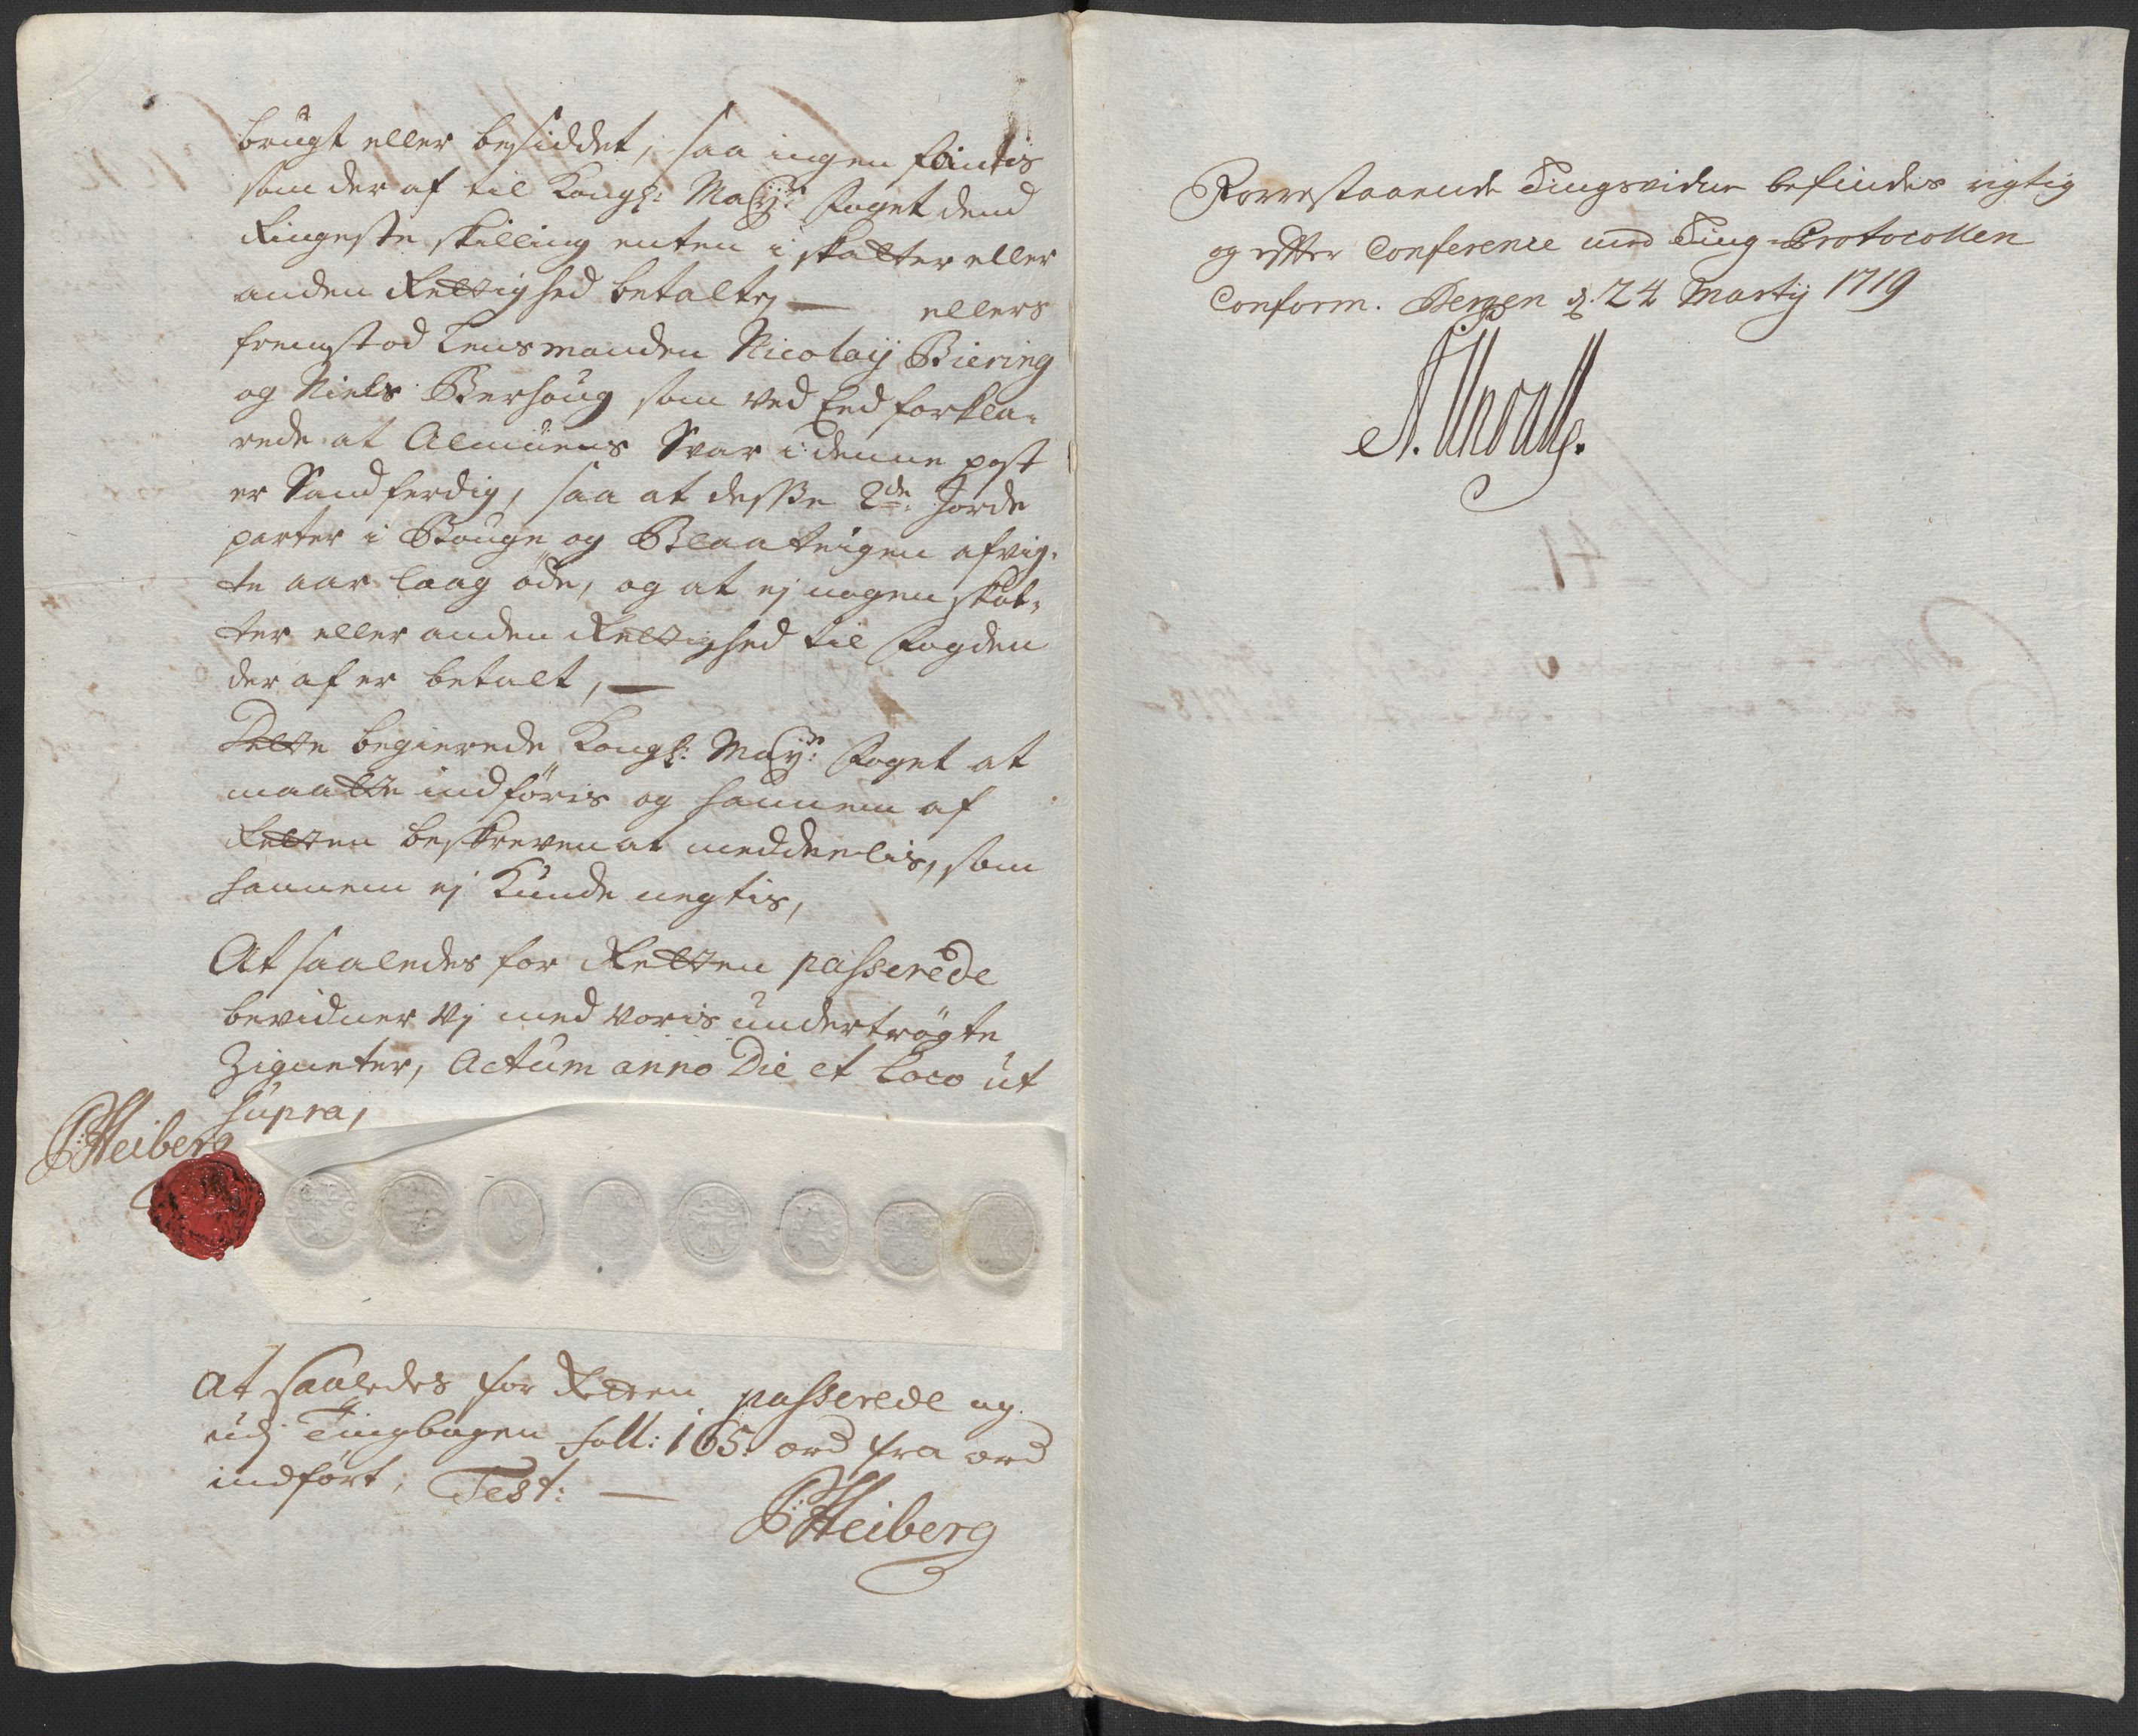 brugt eller besiddet, saa ingen findis
som der af til Kongl: May:ts foget dend
Ringeste skilling enten i skatter eller
anden Rettighed betalte, — ellers
fremstod Lensmanden Nicolaij Biering
og Niels Berhoug som ved Eed forkla-
rede at Almuens Svar i denne post
er Sandferdig, saa at desse 2de Jorde
parter i Bouge og Blaateigen afvig-
te aar laag øde, og at ej nogen skat-
ter eller anden Rettighed til fogden
der af er betalt, —
Dette begierede Kongl: May:ts foget at
maatte indføris og hannem af
Retten beskreven at meddeelis, som
hannem ej Kunde negtis,
At saaledes for Retten passerede
bevidner vj med voris undertrøgte
Zigneter, Actum anno Die et Loco ut
supra,
Heiberg
At saaledes for Retten passerede og
udj Tingbogen foll: 165: ord fra ord
indført, Test: —
Heiberg
Forrestaaende Tingsvidne befindes rigtig
og efter Conference med Ting-Protocollen
Conform. Bergen d. 24 Martij 1719